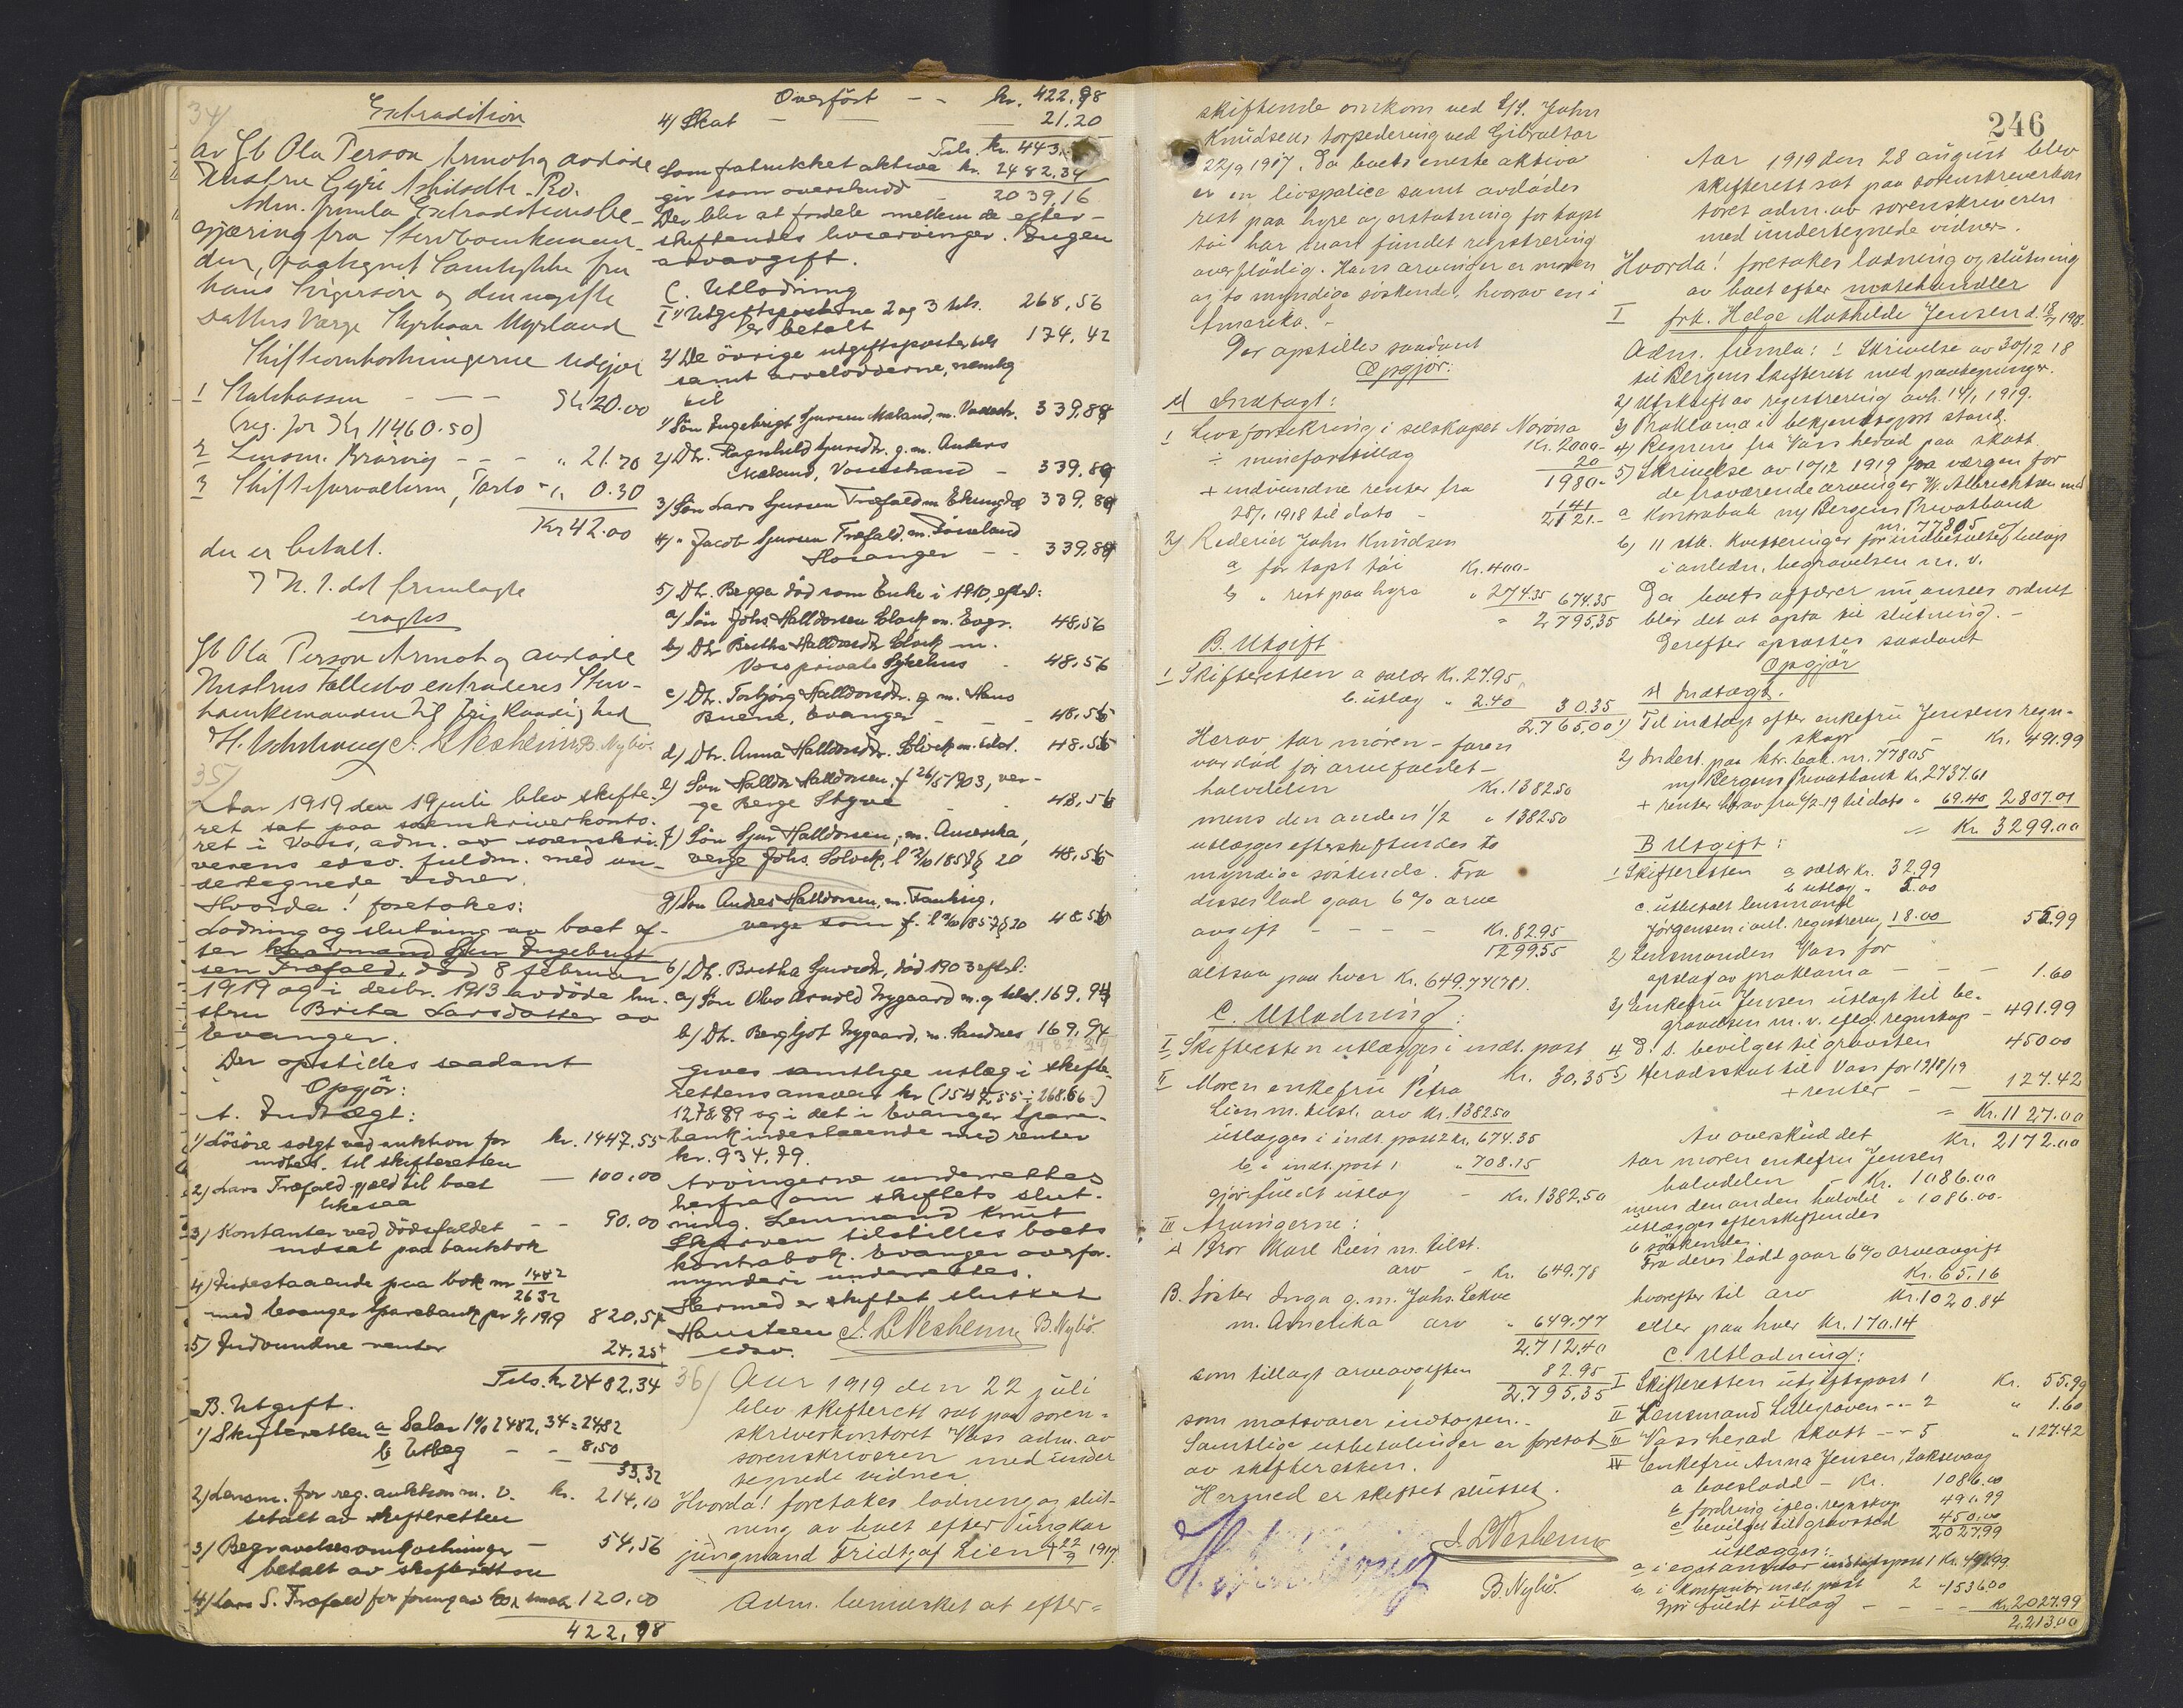 34/
Extradition
av Gb Ola Person Armot og avdöde
Hustru Gyri
Adm. fremla Extraditionsbe-
gjæring fra Stervboenkeman-
den, paategnet Samtykke fra
hans og den ugifte
datters Værge Myrland
Skifteomkostningerne udgjør
1 Statskassen - - - 20.00
(reg. for Kr 11460.50)
2 Lensm. - - - " 21.70
3 Skifteforvalteren, Porto - " 0.30
Kr 42.00
der er betalt.
I H. t. det fremlagte
eragtes
Gb Ola Person Armot og avdöde
Hustrus Fællesbo extraderes Sterv-
boenkemanden til fri Raadighed
L. Vesheim B. Nybö.
35/
Aar 1919 den 19 juli blev skifte-
ret sat paa sorenskriverkonto-
ret i Voss, adm. av sorenskri-
verens edsv. fuldm. med un-
dertegnede vidner.
Hvorda! foretokes:
Lodning og slutning av boet ef-
ter kaarmand Sjur Ingebrigt
sen Træfald, död 8 februar
1919 og i decbr. 1913 avdöde hu-
stru Brita Larsdatter av
Evanger.
Der opstilles saadant
Opgjör:
A. Indtægt:
1) Lösöre solgt ved auktion for kr. 1447.55
indbet. til skifteretten
2) Lars Træfald gjæld til boet — 100.00
likesaa
3) Kontanter ved dödsfaldet - - 90.00
indsat paa bankbok
4) Indestaaende paa bok nr 1482
2632
med Evanger Sparebank pr 1/1 1919 820.54
5) Indvundne renter 24.25
Tils. kr 2482.34
B. Utgift.
1) Skifteretten a Salær 1% 2482,34 = 24.82
b Utlæg - - 8.50
33.32
2) Lensm. for reg. auktion m. v. kr. 214,10
betalt av skifteretten
3) Begravelsesomkostninger — 54,56
betalt av skifteretten
4) Lars S. Træfald for foring av 120.00
422,98
Overført - - kr. 422.98
4) Skat — — 21.20
Tils. kr. 443,
som fratrukket aktiva kr. 2482,34
gir som overskudd - 2039,16
Der blir at fordele mellem de efter-
skiftendes livsarvinger. Ingen
arvavgift.
C. Utlodning
I 1) Utgiftsposterne 2 og 3 tils. 268,56
er betalt
2) De övrige utgiftsposter tils 174,42
samt arvelodderne, nemlig
til
1) Sön Ingebrigt Sjursen Mæland, m. 339.88
2) Dtr. Ragnhild Sjursdtr. g. m. Anders
Mæland, Vossestrand — 339.89
3) Sön Lars Sjursen Træfald m. 339.89
4) " Jacob Sjursen Træfald, m.
Hosanger - - 339.89
5) Dtr. Begga död som Enke i 1910, efterl:
a) Sön Johs. Halldorsen m. Evgr. 48,56
b) Dtr Britha Halldorsdtr m.
Voss private Sykehus - 48,56
c) Dtr. Torbjörg Halldorsdtr. g. m. Hans
Evanger - - - 48.56
d) Dtr. Anna Halldorsdtr. m. tilst. 48.56
e) Sön Halldor Halldorsen, f. 26/5 1903, ver-
ge Berge Styve - - 48,56
f) Sön Sjur Halldorsen, m. Amerika,
verge Johs. § 20 48,56
g) Sön Andres Halldorsen, m.
verge som f. § 20 48.56
6) Dt. Britha Sjursdtr, död 1903 efterl:
a) Sön Olav Arnold Nygaard m. g. tilst. 169,94
b) Dt. Bergljot Nygaard, m. Sandnes 169,94
gives samtlige utlæg i skifte-
rettens ansvar kr (1547,55 ÷ 268.56)
1278.89 og i det i Evanger Spare-
bank indestaaende med renter
kr. 934.79.
Arvingerne underrettes
herfra om skiftets slut-
ning. Lensmand Knut
Skorven tilstilles boets
kontrabok. Evanger overfor-
mynderi underrettes.
Hermed er skiftet sluttet
Hansteen L. Vesheim B. Nybö.
edsv.
36/ Aar 1919 den 22 juli
blev skifterett sat paa soren-
skriverkontoret Voss adm. av
sorenskriveren med under
tegnede vidner
Hvorda! foretokes lodning og slut-
ning av boet efter ungkar
jungmand Fridtjof Lien + 22/9 1917.
Adm. bemerket at efter-
skiftende omkom ved S/S. John
Knudsens torpedering ved Gibraltar
22/9 1917. Da boets eneste aktiva
er en livspolice samt avdödes
rest paa hyre og erstatning for tapt
töi har man fundet registrering
overflödig. Hans arvinger er moren
og to myndige söskende, hvorav en i
Amerika. -
Der opstilles saadant
Opgjör:
A Indtægt:
1 Livsforsikring i selskapet Norröna
Kr. 2000-
÷ minefaretillæg 20
1980-
+ indvundne renter fra 141
28/1 1918 til dato - 2121.-
2) Rederier John Knudsen
a for tapt töi Kr. 400-
b " rest paa hyre " 274.35 674.35
= 2795,35
B. Utgift
1 Skifteretten a salær Kr. 27.95
b. utlæg " 2.40 30.35
2765.00
Herav tar moren - faren
var död för arvefaldet -
halvdelen Kr. 1382.50
mens den anden 1/2 " 1382.50
utlægges efterskiftendes to
myndige söskende. Fra
disses lod gaar 6% arve
avgift - - - - Kr. 82.95
1299.55
altsaa paa hver Kr. 649.77(78).
C. Utlodning:
I Skifteretten utlægges i indt. post
Kr. 30.35
II Moren enkefru Petra
Lien m. tilst. arv Kr. 1382.50
utlægges i indt. post 2 kr. 674.35
b i indt. post 1 " 708.15
gjör fuldt utlæg - Kr. 1382.50
III Arvingerne:
A Bror Karl Lien m. tilst.
arv - Kr. 649.78
B. Söster Inga g. m. Johs. Lekve
m. Amerika arv " 649.77
2.712.40
som tillagt arveavgiften 82.95
2.795.35
som motsvarer indtægten.-
Samtlige utbetalinger er foretat
av skifteretten.
Hermed er skiftet sluttet.
L. Vesheim
B. Nybö.
246
Aar 1919 den 28 august blev
skifterett sat paa sorenskriverkon
toret adm. av sorenskriveren
med undertegnede vidner.
Hvorda! foretokes lodning og slutning
av boet efter motehandler
I frk. Helga Mathilde Jensen d. 18/7 1918.
Adm. fremla: 1 Skrivelse av 30/12 18
til Bergens skifterett med paategninger.
2) Utskrift av registrering avh. 14/1 1919.
3) Proklama i bekjendtgjort stand.
4) Regning fra Voss herad paa skatt
5) Skrivelse av 10/12 1919 fra værgen for
de fraværende arvinger W. Albrechtsen med
a Kontrabok ny Bergens Privatbank
nr. 77805
b) 11 stk. Kvitteringer for indbetalte beløp
i anledn. begravelsen m. v.
Da boets affærer nu ansees ordnet
blir det at opta til slutning. -
Derefter opsattes saadant
Opgjör
A Indtægt.
1) Til indtægt efter enkefru Jensens regn-
skap Kr. 491.99
2) Indest. paa ktr. bok. nr. 77805
ny Bergens Privatbank Kr. 2737.61
+ renter herav fra 6/2-19 til dato " 69.40 2807.01
= Kr. 3299.00
B Utgift:
1 Skifteretten a salær kr. 32.99
b utlæg " 5.00
c. utbetalt lensmand
Jörgensen i anl. registrering 18.00 55.99
2) Lensmanden Voss for
opslag av proklama - - - 1.60
3) Enkefru Jensen utlagt til be-
gravelsen m. v. eflg. regnskap - 491.99
4 D. s. bevilget til gravsten 450.00
5) Heradsskat til Voss for 1918/19
+ renter - 127.42
= Kr. 1127.00
Av overskuddet Kr. 2172.00
tar moren enkefru Jensen
halvdelen - Kr. 1086.00
mens den anden halvdel " 1086.00-
utlægges efterskiftendes
6 söskende.
Fra deres lodd gaar 6% arveavgift
Kr. 65.16
hvorefter til arv Kr. 1020.84
eller paa hver Kr. 170.14
C. Utlodning:
I Skifteretten utgiftspost 1 Kr. 55.99
II Lensmand Lillegraven - - 2 " 1.60
III Voss herad skatt - - 5 " 127.42
IV Enkefru Anna Jensen, Laksevaag
a boeslodd - Kr. 1086.00
b fordring iflg. regnskap 491.99
c bevilget til gravsted 450.00
2027.99
utlægges:
a i eget ansvar indtægtspost 1 Kr. 491.99
b i kontanter indt. post 2 " 1536.00
gjör fuldt utlæg - - - - Kr. 2027.99
2.213.00